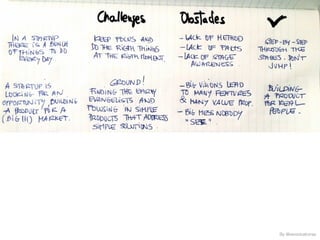 Challenges
Obstacles
IN A STARTUP
THERE IS A BUNCH
OF THINGS TO DO
EVERY DAY.
KEEP FOCUS AND
DO THE RIGTH THINGS
AT THE RIGTH MOMENT.
- LACK OF METHOD
- LACK OF FACTS
- LACK OF STAGE
AWARENESS
STEP-BY-STEP
THROUGH THE
STAGES. DON'T
JUMP!
A STARTUP IS
LOOKING FOR AN
OPPORTUNITY BUILDING
A PRODUCT FOR A
(BIG!!!) MARKET.
GROUND!
FINDING THE EARLY
EVANGELISTS AND
FOCUSING IN SIMPLE
PRODUCTS THAT ADDRESS
SIMPLE SOLUTIONS
- BIG VISIONS LEAD
TO MANY FEATURES
& MANY VALUE PROP.
- BIG MESS NOBODY
"SEE".
BUILDING
A PRODUCT
FOR REAL
PEOPLE.